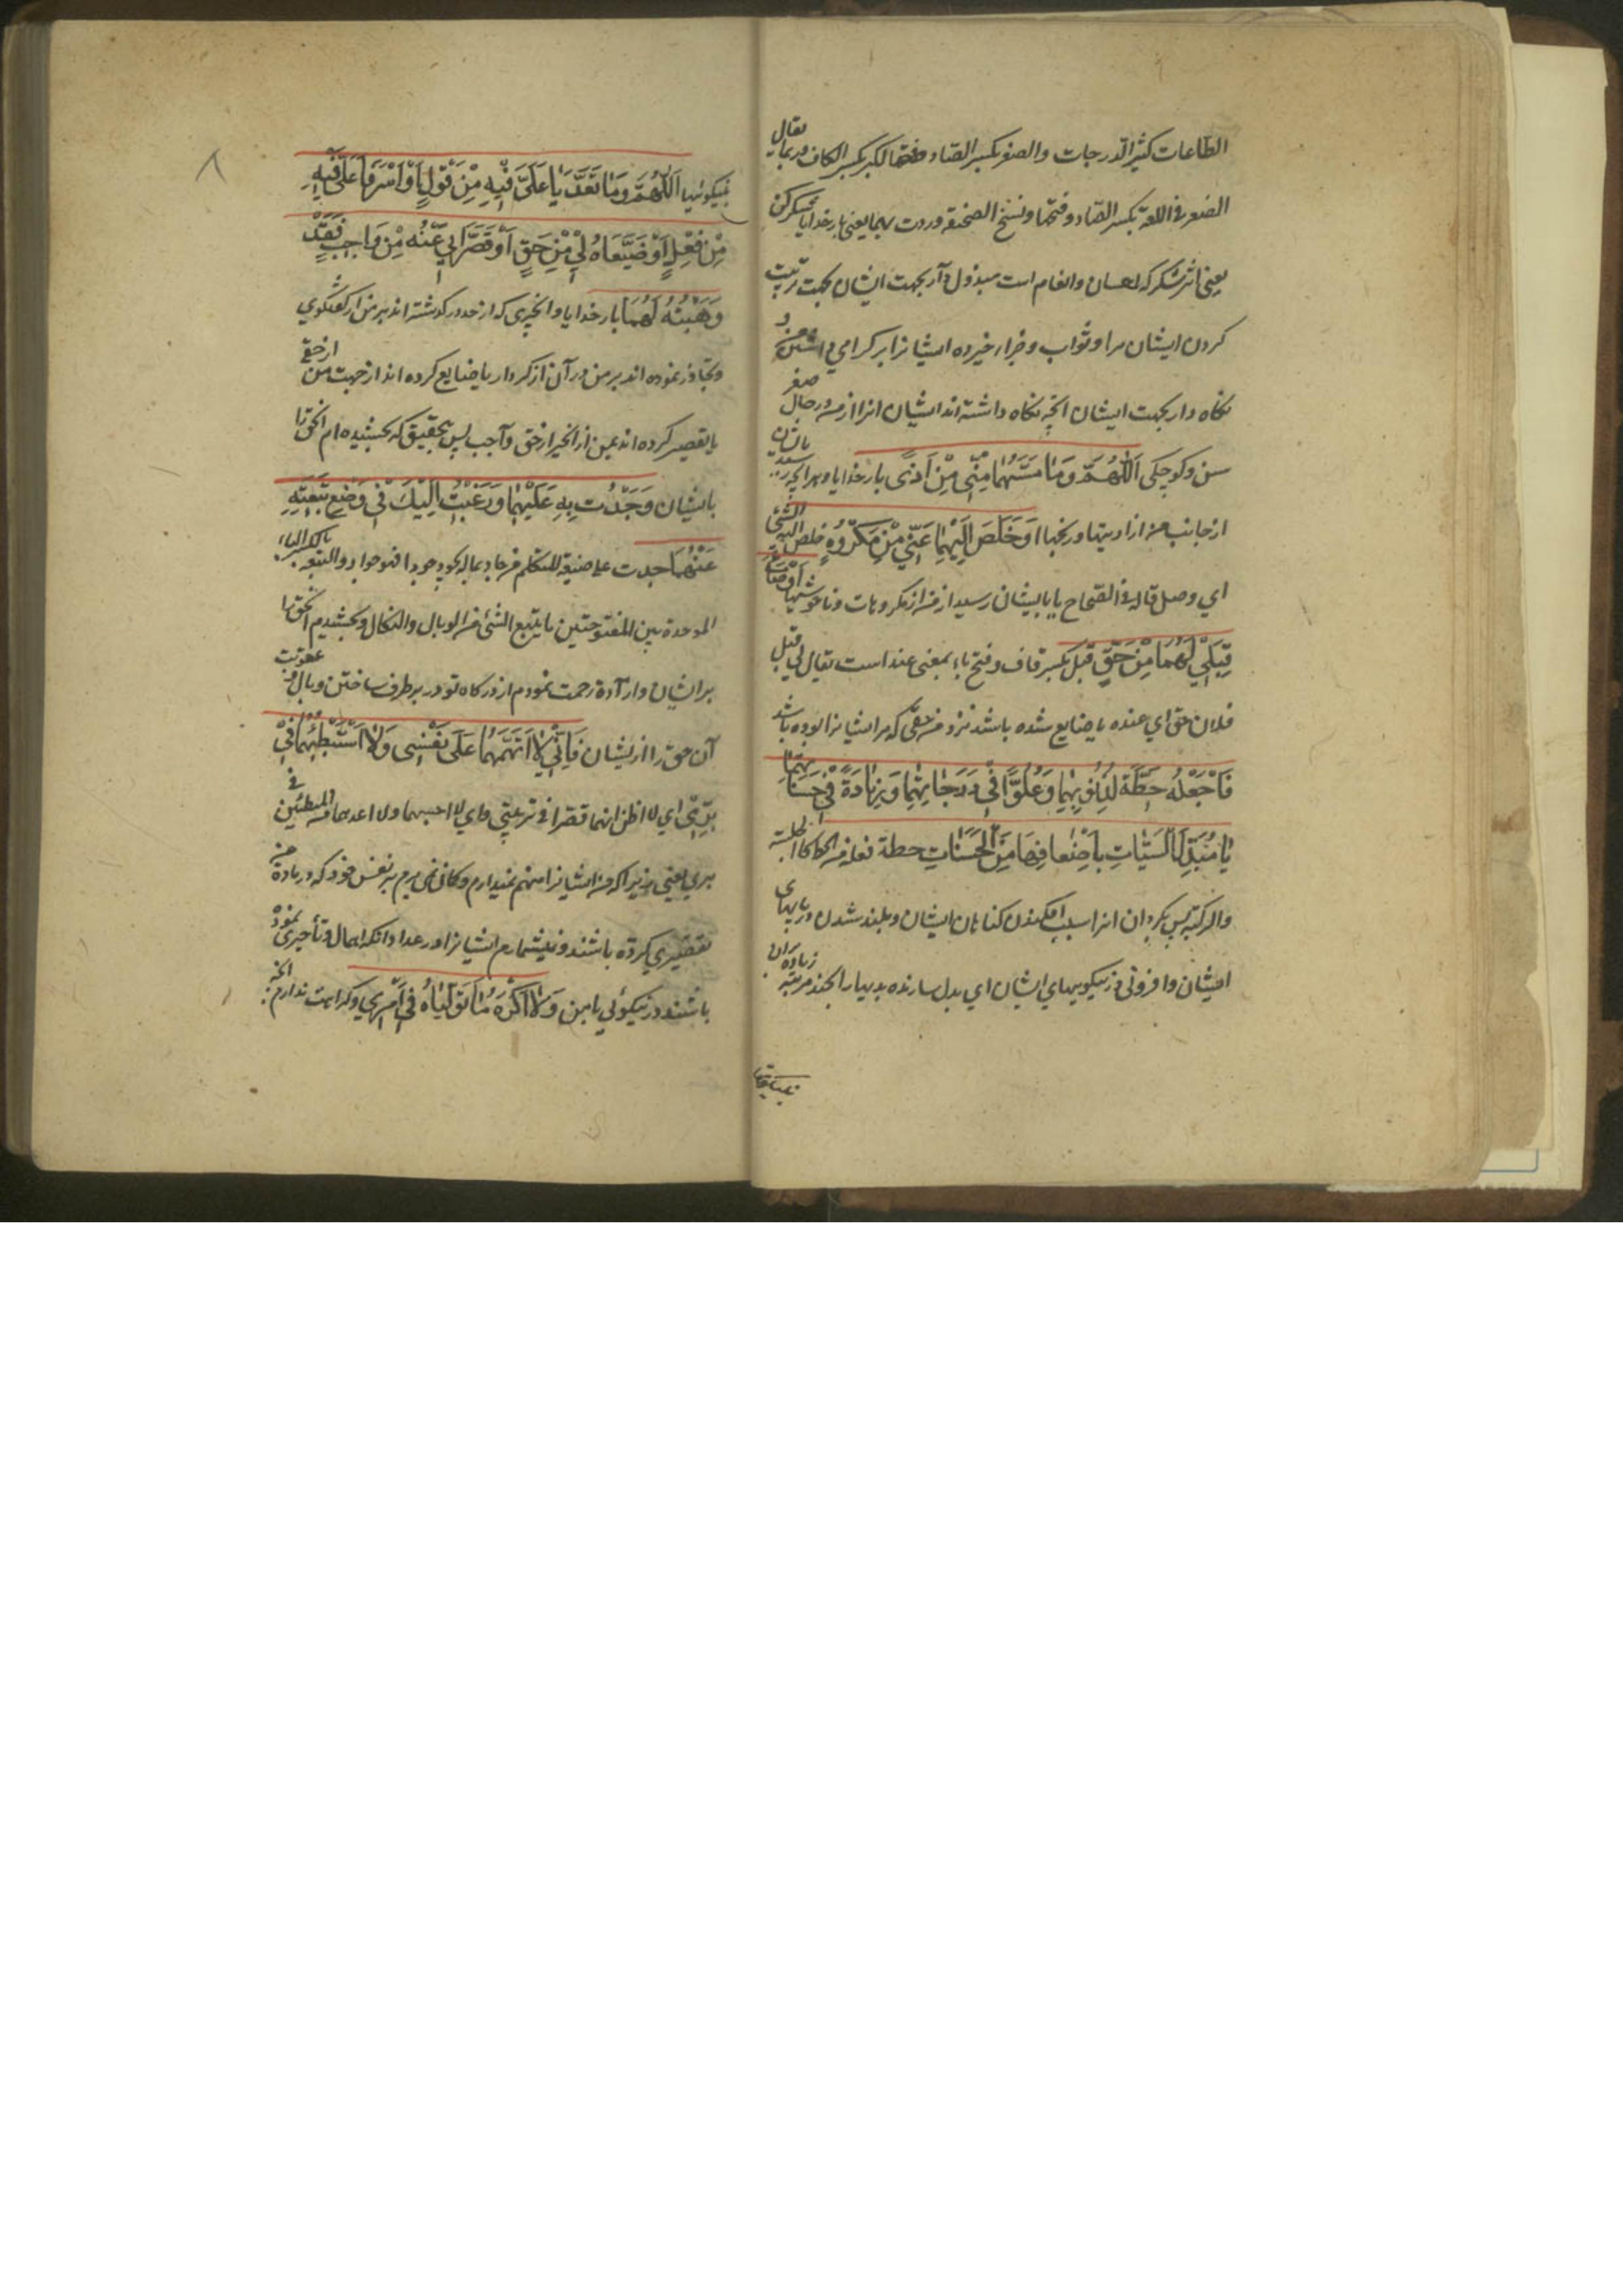 الطاعات كثير الدرجات والصغر بكسر الصاد وفتحها لكبر بكسر الكاف وربما يقال
الصغر في اللغة بكسر الصاد وفتحها ونسخ الصحيفة وردت بهما يعنى بار خدايا شكر كن
يعنى اثر شكر كه احسان وانعام است مبذول دار بجهت ايشان بجهت تربيت
كردن ايشان مرا وثواب وجزاء خير ده ايشانرا بر كرامي داشتن من و
نكاه دار بجهت ايشان انچه نكاه داشته اند ايشان انرا از من در حال صغر
سن وكوچكى اَللّٰهُمَّ وَمَا مَسَّهُمَا مِنِّي مِنْ اَذىً بار خدايا وهر انچه رسيد بايشان
از جانب من از اذيتها ورنجها اَوْ خَلَصَ اِلَيْهِمَا عَنِّي مِنْ مَكْرُوهٍ خلص اليه الشئ
اي وصل قاله في الصحاح يا بايشان رسيد از من از مكروهات وناخوشيها اَوْ ضَاعَ
قِبَلِي لَهُمَا مِنْ حَقٍّ قبل بكسر قاف وفتح باء بمعنى عند است يقال لي قبل
فلان حق اي عنده يا ضايع شده باشد نزد من حقى كه مر ايشانرا بوده باشد
فَاجْعَلْهُ حِطَّةً لِذُنُوبِهِمَا وَعُلُوًّا فِي دَرَجَاتِهِمَا وَزِيَادَةً فِي حَسَنَاتِهِمَا
يَا مُبَدِّلَ السَّيِّئَاتِ بِاَضْعَافِهَا مِنَ الْحَسَنَاتِ حطة فعلة من الحط كالجلسة
والركبة پس بكردان انرا سبب افكندن كناهان ايشان وبلند شدن درپايهاى
ايشان وافزونى در نيكوييهاي ايشان اي بدل سازنده بديها را بچند مرتبه زياده ان
بنيكوئيها
بنيكوئيها اَللّٰهُمَّ وَمَا تَعَدَّيَا عَلَيَّ فِيهِ مِنْ قَوْلٍ اَوْ اَسْرَفَا عَلَيَّ فِيهِ
مِنْ فِعْلٍ اَوْ ضَيَّعَاهُ لِي مِنْ حَقٍّ اَوْ قَصَّرَا بِي عَنْهُ مِنْ وَاجِبٍ فَقَدْ
وَهَبْتُهُ لَهُمَا بار خدايا وانچيزى كه از حد در كذشته اند بر من از كفتكوي
وتجاوز نموده اند بر من در آن از كردار يا ضايع كرده اند از جهت من از حق
يا تقصير كرده اند بمن از انچيز از حق واجب پس بتحقيق كه بخشيده ام انحق را
بايشان وَجُدْتُ بِهِ عَلَيْهِمَا وَرَغِبْتُ اِلَيْكَ فِي وَضْعِ تَبِعَتِهِ
عَنْهُمَا جدت على صيغة المتكلم من جاد بماله يجود جودا فهو جواد والتبعه بالكسر الباء
الموحدة بين المفتوحتين ما يتبع الشئ من الوبال والنكال وبخشيدم انحق را
بر ايشان وارادة رحمت نمودم از دركاه تو در برطرف ساختن وبال و عقوبت
آن حق را از ايشان فَاِنِّي لَا اَتَّهِمُهُمَا عَلَى نَفْسِي وَلَا اَسْتَبْطِئُهُمَا فِي
بِرِّي اي لا اظن انهما قصرا في تربيتي واي لا احسبهما ولا اعدهما من المبطئين في
بري يعني زيرا كه من ايشانرا متهم نميدارم وكمان نمى برم بر نفس خود كه در باده من
تقصيري كرده باشند ونميشمارم ايشانرا در عداد انكه اهمال وتأخيرى نموده
باشند در نيكوئي با من وَلَا اَكْرَهُ مَا تَوَلَّيَاهُ فِي اَمْرِي وكراهت ندارم انچه